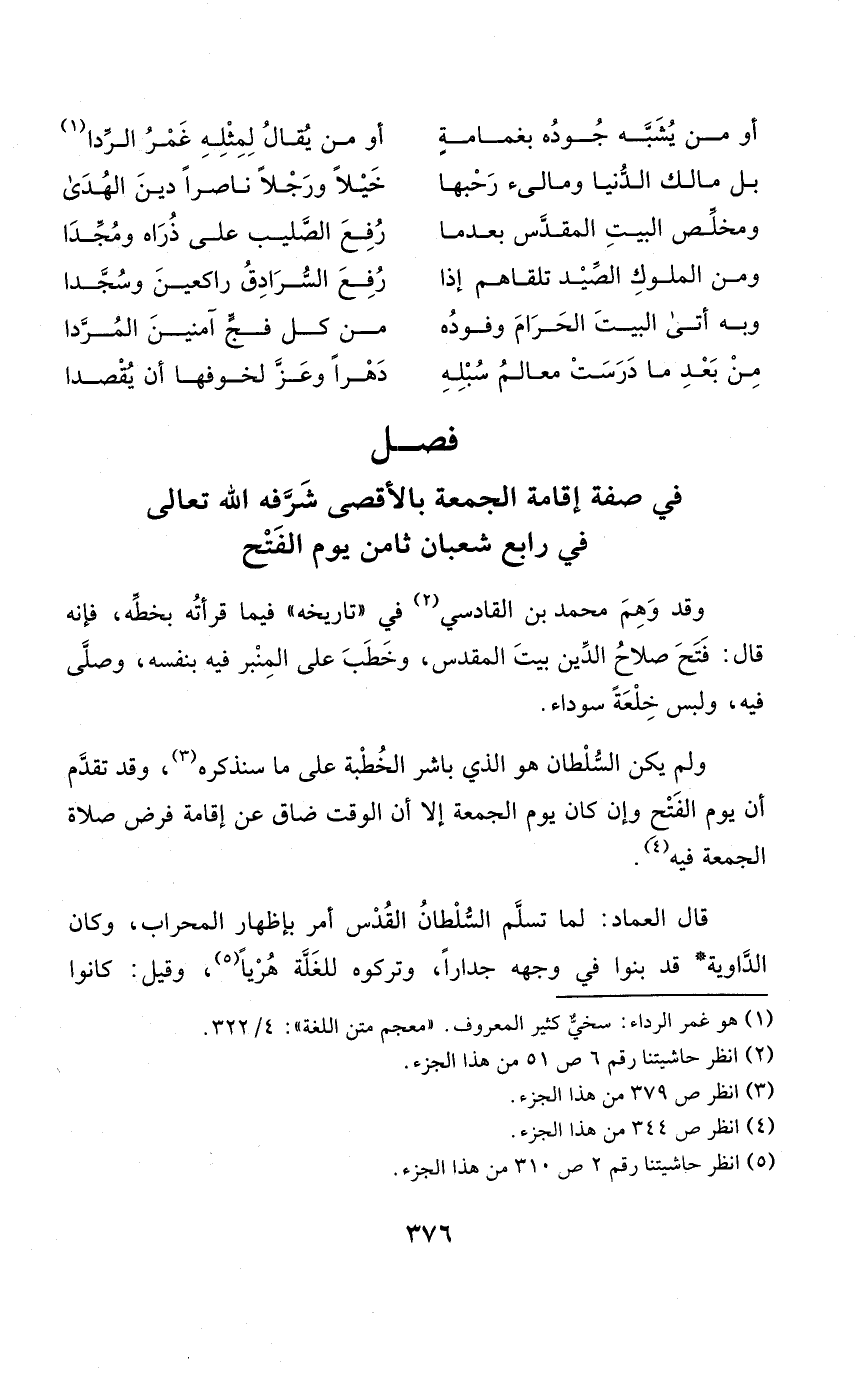 أو مــن يُشَبَّــه جُــودُه بغمـامــةٍ أو مـن يُقـالُ لِمِثْلِـهِ غَمْـرُ الـرِّدا(١)
بـل مـالـك الـدُّنيـا ومـالـىء رَحْبهـا خَيْـلاً ورَجْـلاً نـاصـراً ديـنَ الهُـدَىٰ
ومخلِّـص البيـتِ المقـدَّس بعـدمـا رُفِـعَ الصَّليـب علـى ذُرَاه ومُجِّـدَا
ومـن الملـوكِ الصِّيْـد تلقـاهـم إذا رُفِـعَ السُّـرَادِقُ راكعيـنَ وسُجَّـدا
وبـه أتـىٰ البيـتَ الحَـرَامَ وفـودُه مــن كــل فــجٍّ آمنيــنَ المُـرَّدا
مِـنْ بَعْـدِ مـا دَرَسَـتْ معـالـمُ سُبْلِـهِ دَهْـراً وعَـزَّ لخـوفهـا أن يُقْصـدا
فصــل
في صفة إقامة الجمعة بالأقصى شَرَّفه الله تعالى
في رابع شعبان ثامن يوم الفَتْح
وقد وَهِمَ محمد بن القادسي(٢) في «تاريخه» فيما قرأتُه بخطِّه، فإنه
قال: فَتَحَ صلاحُ الدِّين بيتَ المقدس، وخَطَبَ على المِنْبر فيه بنفسه، وصلَّى
فيه، ولبس خِلْعَةً سوداء.
ولم يكن السُّلْطان هو الذي باشر الخُطْبة على ما سنذكره(٣)، وقد تقدَّم
أن يوم الفَتْح وإن كان يوم الجمعة إلا أن الوقت ضاق عن إقامة فرض صلاة
الجمعة فيه(٤).
قال العماد: لما تسلَّم السُّلْطانُ القُدْس أمر بإظهار المحراب، وكان
الدَّاوية* قد بنوا في وجهه جداراً، وتركوه للغَلَّة هُرْياً(٥)، وقيل: كانوا
(١) هو غمر الرداء: سخيٌّ كثير المعروف. «معجم متن اللغة»: ٤/ ٣٢٢.
(٢) انظر حاشيتنا رقم ٦ ص ٥١ من هذا الجزء.
(٣) انظر ص ٣٧٩ من هذا الجزء.
(٤) انظر ص ٣٤٤ من هذا الجزء.
(٥) انظر حاشيتنا رقم ٢ ص ٣١٠ من هذا الجزء.
٣٧٦